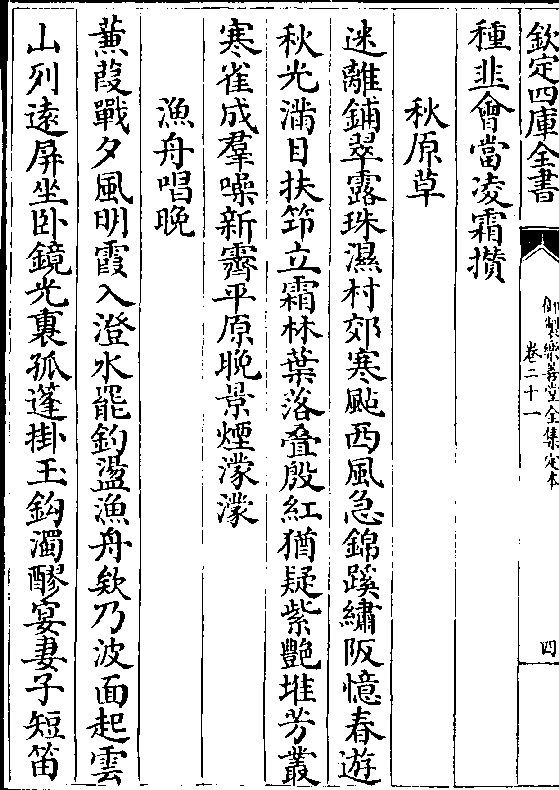 欽定四庫全書
御製樂善堂全集定本
卷二十一
四
種韭會當凌霜攢
秋原草
迷離鋪翠露珠濕村郊寒颭西風急錦蹊繡阪憶春遊
秋光滿目扶筇立霜林葉落叠殷紅猶疑紫艷堆芳叢
寒雀成羣噪新霽平原晚景煙濛濛
漁舟唱晚
蒹葭戰夕風明霞入澄水罷釣盪漁舟欸乃波面起雲
山列遠屏坐卧鏡光裏孤蓬掛玉鈎濁醪宴妻子短笛